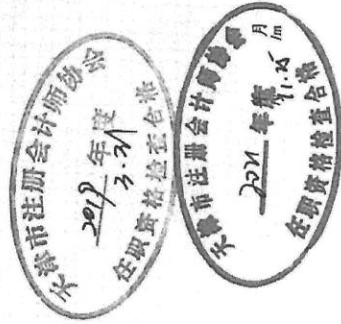 天津市注册会计师协会
2019 年度
3.31
任职资格检查合格
天津市注册会计师协会
2021 年度
11.25
月
任职资格检查合格